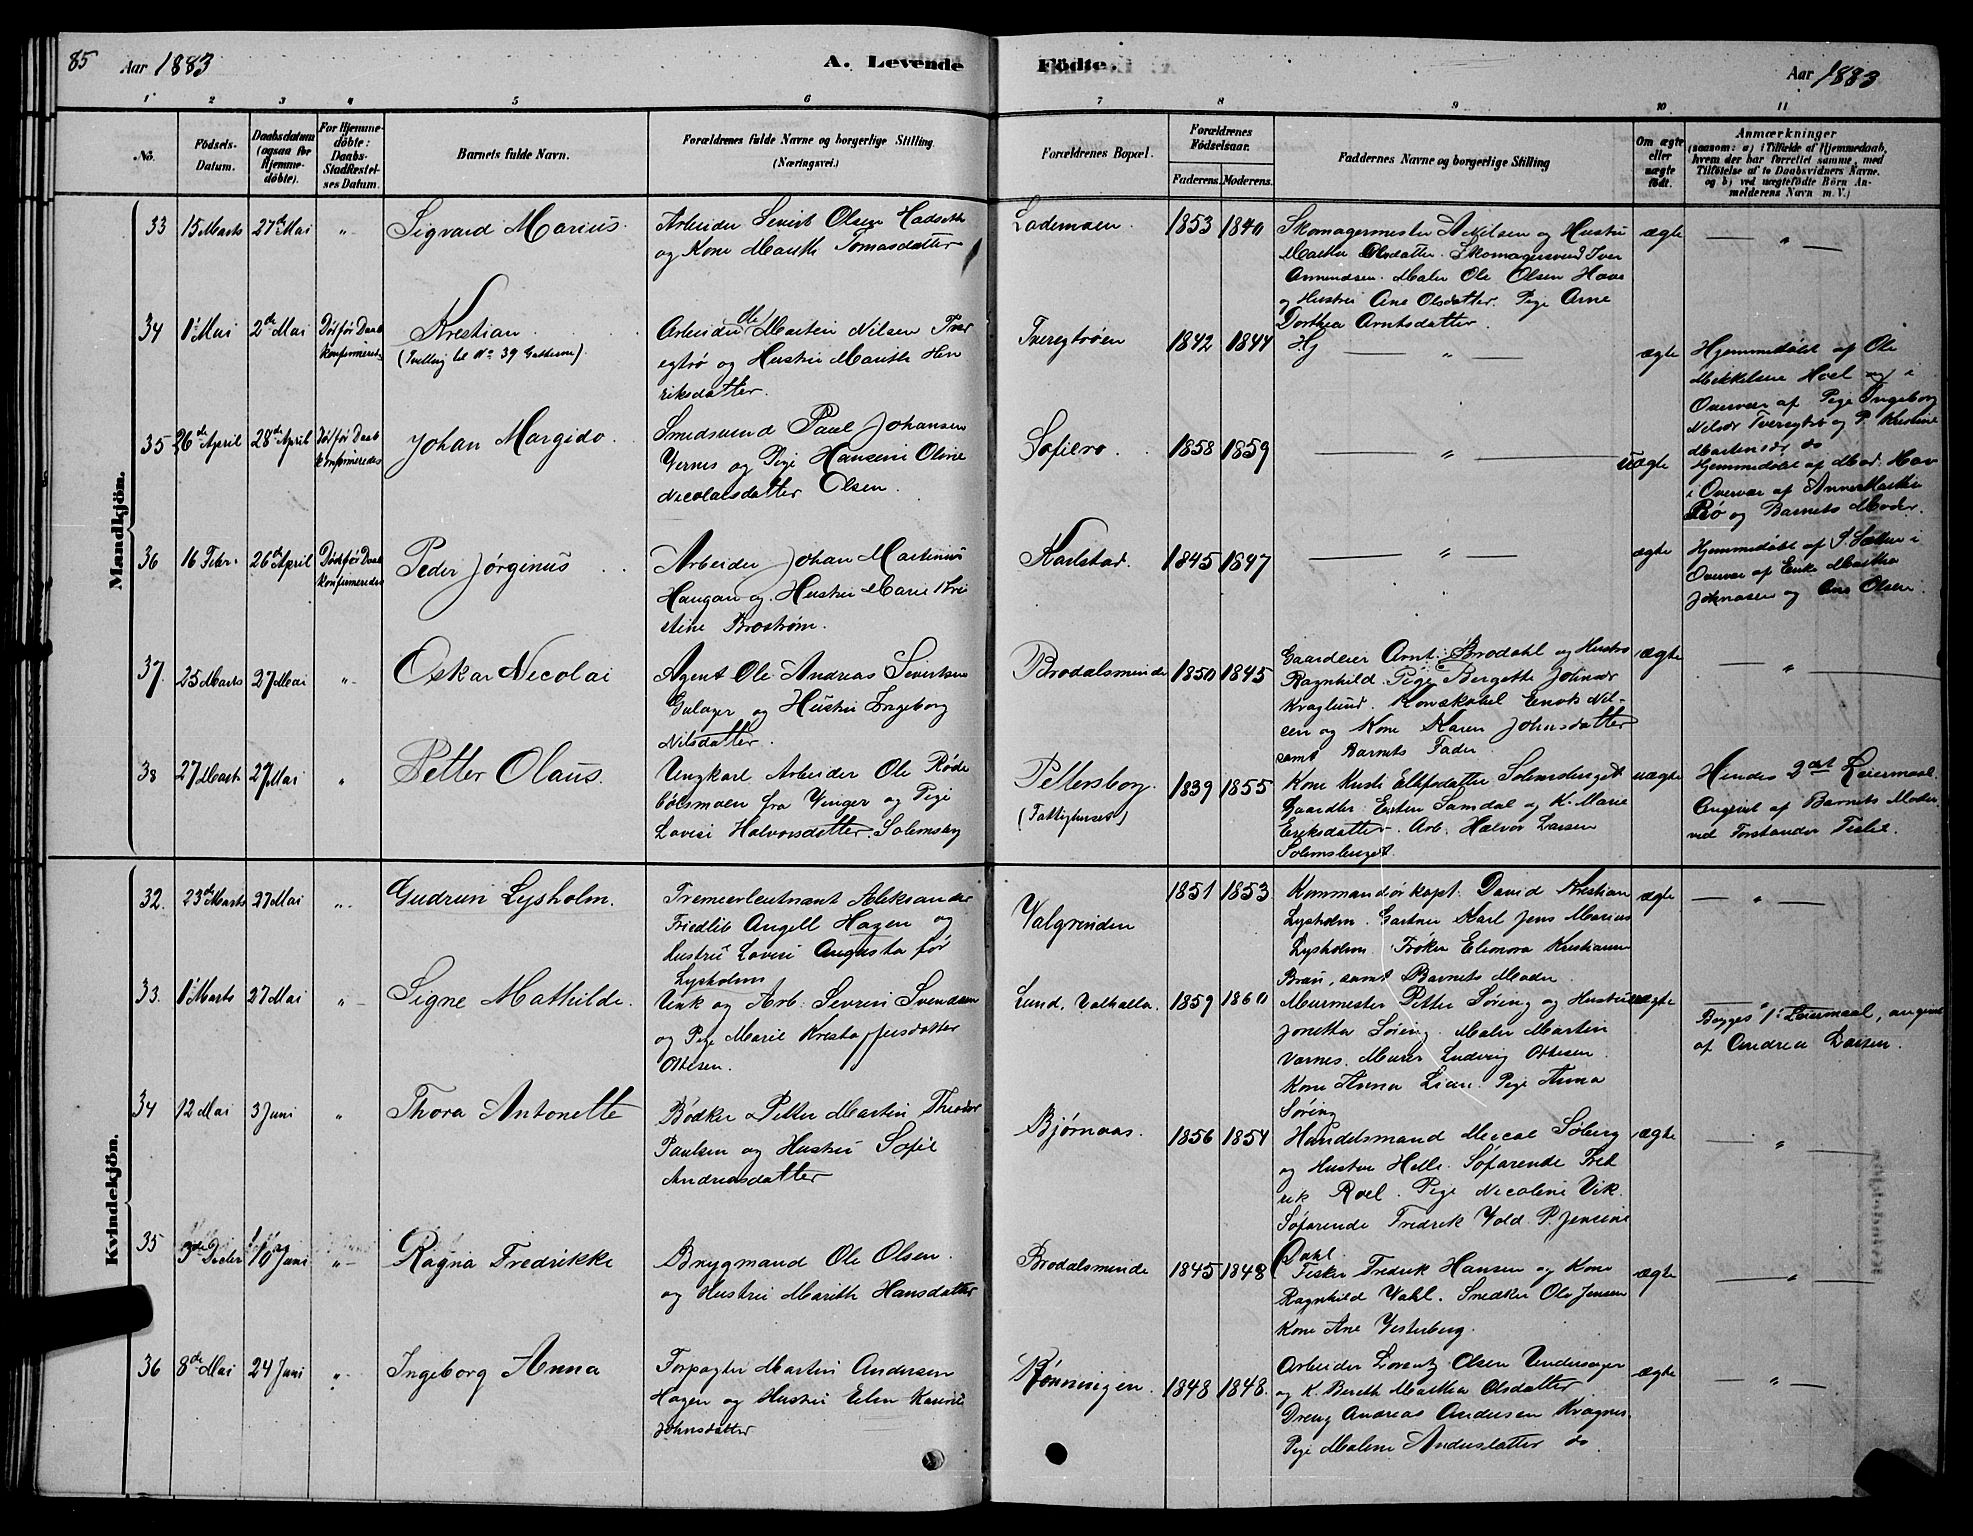 85 Aar 1883 A. Levende Fødte. Aar 1883
1 2 3 4 5 6 7 8 9 10 11
No.
Födsels-
Datum.
Daabsdatum
(ogsaa for
Hjemme-
döbte).
For Hjemme-
döbte:
Daabs-
Stadfæstel-
ses Datum.
Barnets fulde Navn.
Forældrenes fulde Navne og borgerlige Stilling.
(Næringsvei.)
Forældrenes Bopæl.
Forældrenes
Födselsaar.
Faderens. Moderens.
Faddernes Navne og borgerlige Stilling
Om ægte
eller
uægte
födt.
Anmærkninger
(saasom: a) i Tilfælde af Hjemmedaab,
hvem der har forrettet samme, med
Tilföielse af to Daabsvidners Navne.
og b) ved uægtefödte Börn An-
melderens Navn m. V.)
Mandkjön.
33 15 Marts 27de Mai " Sigvard Marius.
Arbeider Severt Olsen Hadseth
og Kone Marith Tomasdatter
Lademoen. 1853 1840
Skomagermester A Nilsen og Hustru
Martha Olsdatter. Skomagersvend Iver
Amundsen. Maler Ole Olsen
og Hustru Ane Olsdatter. Pige Arne
Dorthea Arntsdatter.
ægte "
34 1 Mai 2de Mai
Døsfør Daab
konfirmeret
Kristian.
(Tvilling til No 39 Gutterne).
Arbeider Ole Martin Nilsen Tver
egtrø og Hustru Marith Hen
riksdatter.
Tveregtrøen 1842 1844 Hj " ægte
Hjemmedøbt af Ole
Mikkelsen Hoel og i
Overvær af Pige Ingeborg
Nilsdr Tveregtrø og P. Kristine
Martensdr do
35 26de April 28de April
Døsfør Daab
konfirmeredes
Johan Margido.
Smedsvend Paul Johansen
Vernes og Pige Hansine Oline
Nicolaisdatter Olsen.
Sofiero. 1858 1859 " uægte
Hjemmedøbt af Mad.
i Overvær af Anne Martha
Rø og Barnets Moder.
36 16 Febr. 26de April
Døsfør Daab
konfirmeredes
Peder Jørginus
Arbeider Johan Martinius
Haugan og Hustru Marie Kri
stine Brostrøm.
Karlstad. 1845 1847 " ægte
Hjemmedøbt af P. Sæther i
Overvær af Enke Martha
Johnasen og Ane Olsen.
37. 25 Marts 27 Mai " Oskar Nicolai
Agent Ole Andreas Sivertsen
Gulager og Hustru Ingeborg
Nilsdatter.
Brodalsminde 1850 1845
Gaardeier Arnt Brodahl og Hustru
Ragnhild. Pige Bergette Johnsdr
Kraglund. Enok Nil-
sen og Kone Karen Johnsdatter
samt Barnets Fader
ægte "
38 27 Marts 27 Mai " Petter Olaus.
Ungkarl Arbeider Ole Røde
bølsmoen fra Vinger og Pige
Lovise Halvorsdatter Solemsbg
Pettersborg.
(Fattighuset)
1839 1855
Kone Kirsti Ellefsdatter Solemsberget
Gaardbr. Samdal og K. Marie
Eriksdatter. Arb. Halvor Larsen
Solemsberget.
uægte
Hendes 2det Leiermaal.
Angivet af Barnets Moder
ved Forstander
Kvindekjön.
32. 23de Marts 27 Mai " Gudrun Lysholm.
Premierleutnant Aleksander
Friedlib Angell Hagen og
Hustru Lovise Augusta før
Lysholm
Valgrinden 1851 1853
Kommandørkapt. David Kristian
Lysholm. Gartner Karl Jens Marius
Lysholm. Frøken Elenora Kristianne
Brun, samt Barnets Moder.
ægte "
33. 1 Marts 27 Mai " Signe Mathilde.
Unk og Arb. Sevrin Svendsen
og Pige Marie Kristoffersdatter
Ottesen.
Lund, Valhalla. 1859 1860
Murmester Petter Søring og Hustru
Jonetta Søring. Maler Martin
Varnes. Murer Ludvig Ottesen.
Kone Anna Lian. Pige Anna
Søring
uægte "
Begges 1ste Leiermaal, angivet
af Andrea Larsen.
34 12 Mai 3 Juni " Thora Antonette
Bødker Petter Martin Theodor
Paulsen og Hustru Sofie
Andreasdatter
Bjørnaas. 1856 1854
Handelsmand Søberg
og Hustru Helle. Søfarende Fred
rik Roel. Pige Nicoline Vik.
Søfarende Fredrik Vold. P. Jensine
Dahl.
ægte "
35 10 Juni " Ragna Fredrikke
Brygmand Ole Olsen.
og Hustru Marith Hansdatter
Brodalsminde 1845 1848
Fisker Fredrik Hansen og Kone
Ragnhild Wahl. Snedker Ole Jensen
Kone Ane Vesterberg.
ægte "
36 8de Mai 24 Juni " Ingeborg Anna
Forpagter Martin Andersen
Hagen og Hustru Elen Kanvie
Johnsdatter
Rønningen. 1848 1848.
Arbeider Lorentz Olsen Undersager
og K. Bereth Martha Olsdatter
Dreng Andreas Andersen Kragnes.
Pige Malene Andersdatter do.
ægte "